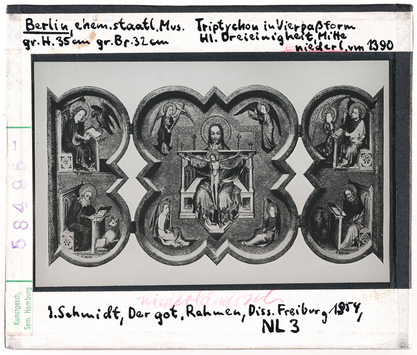 Berlin, ehem. staatl. Mus. Triptychon in Vierpaßform
gr. H. 35cm gr. Br. 32cm Hl. Dreieinigkeit, Mitte
niederl. um 1390
58495
Kunstgesch.
Sem. Hamburg
J. Schmidt, Der got. Rahmen, Diss. Freiburg 1954,
NL 3